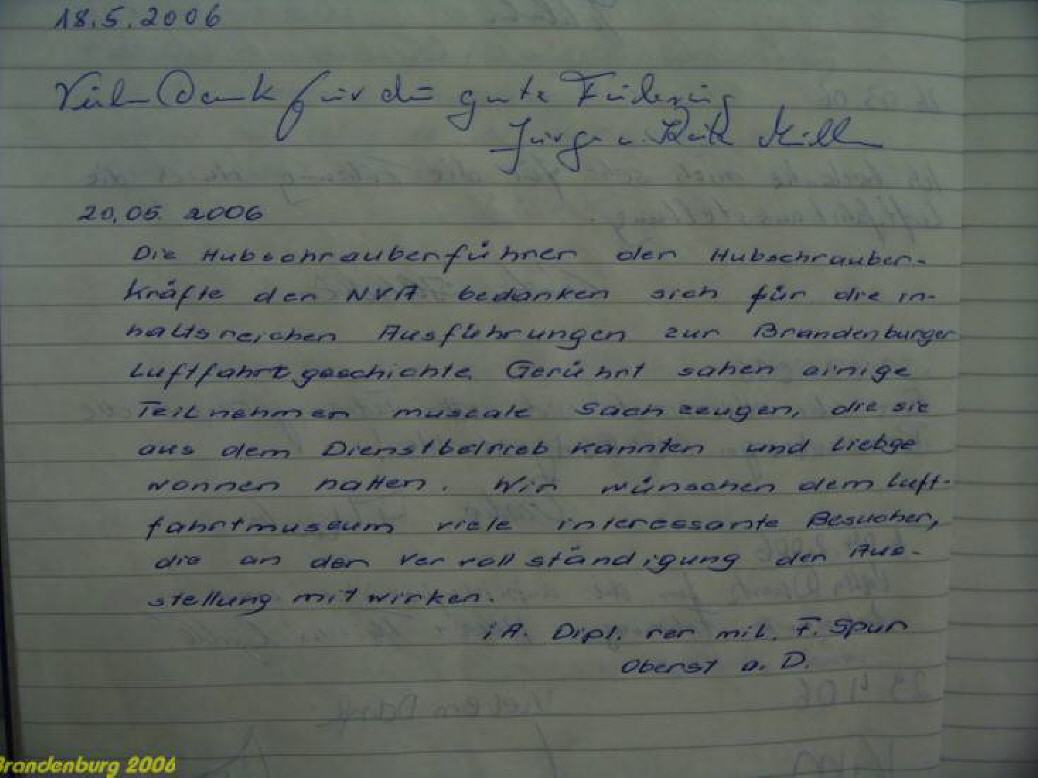 18.5.2006
Vielen Dank für die gute Führung
Jürgen u.
20.05. 2006
Die Hubschrauberführer der Hubschrauber-
kräfte der NVA bedanken sich für die in-
haltsreichen Ausführungen zur Brandenburger
Luftfahrtgeschichte. Gerührt sahen einige
Teilnehmer museale Sachzeugen, die sie
aus dem Dienstbetrieb kannten und liebge
wonnen hatten. Wir wünschen dem Luft-
fahrtmuseum viele interessante Besucher,
die an der Vervollständigung der Aus-
stellung mitwirken.
i.A. Dipl. rer mil. F. Spur
Oberst a. D.
Brandenburg 2006